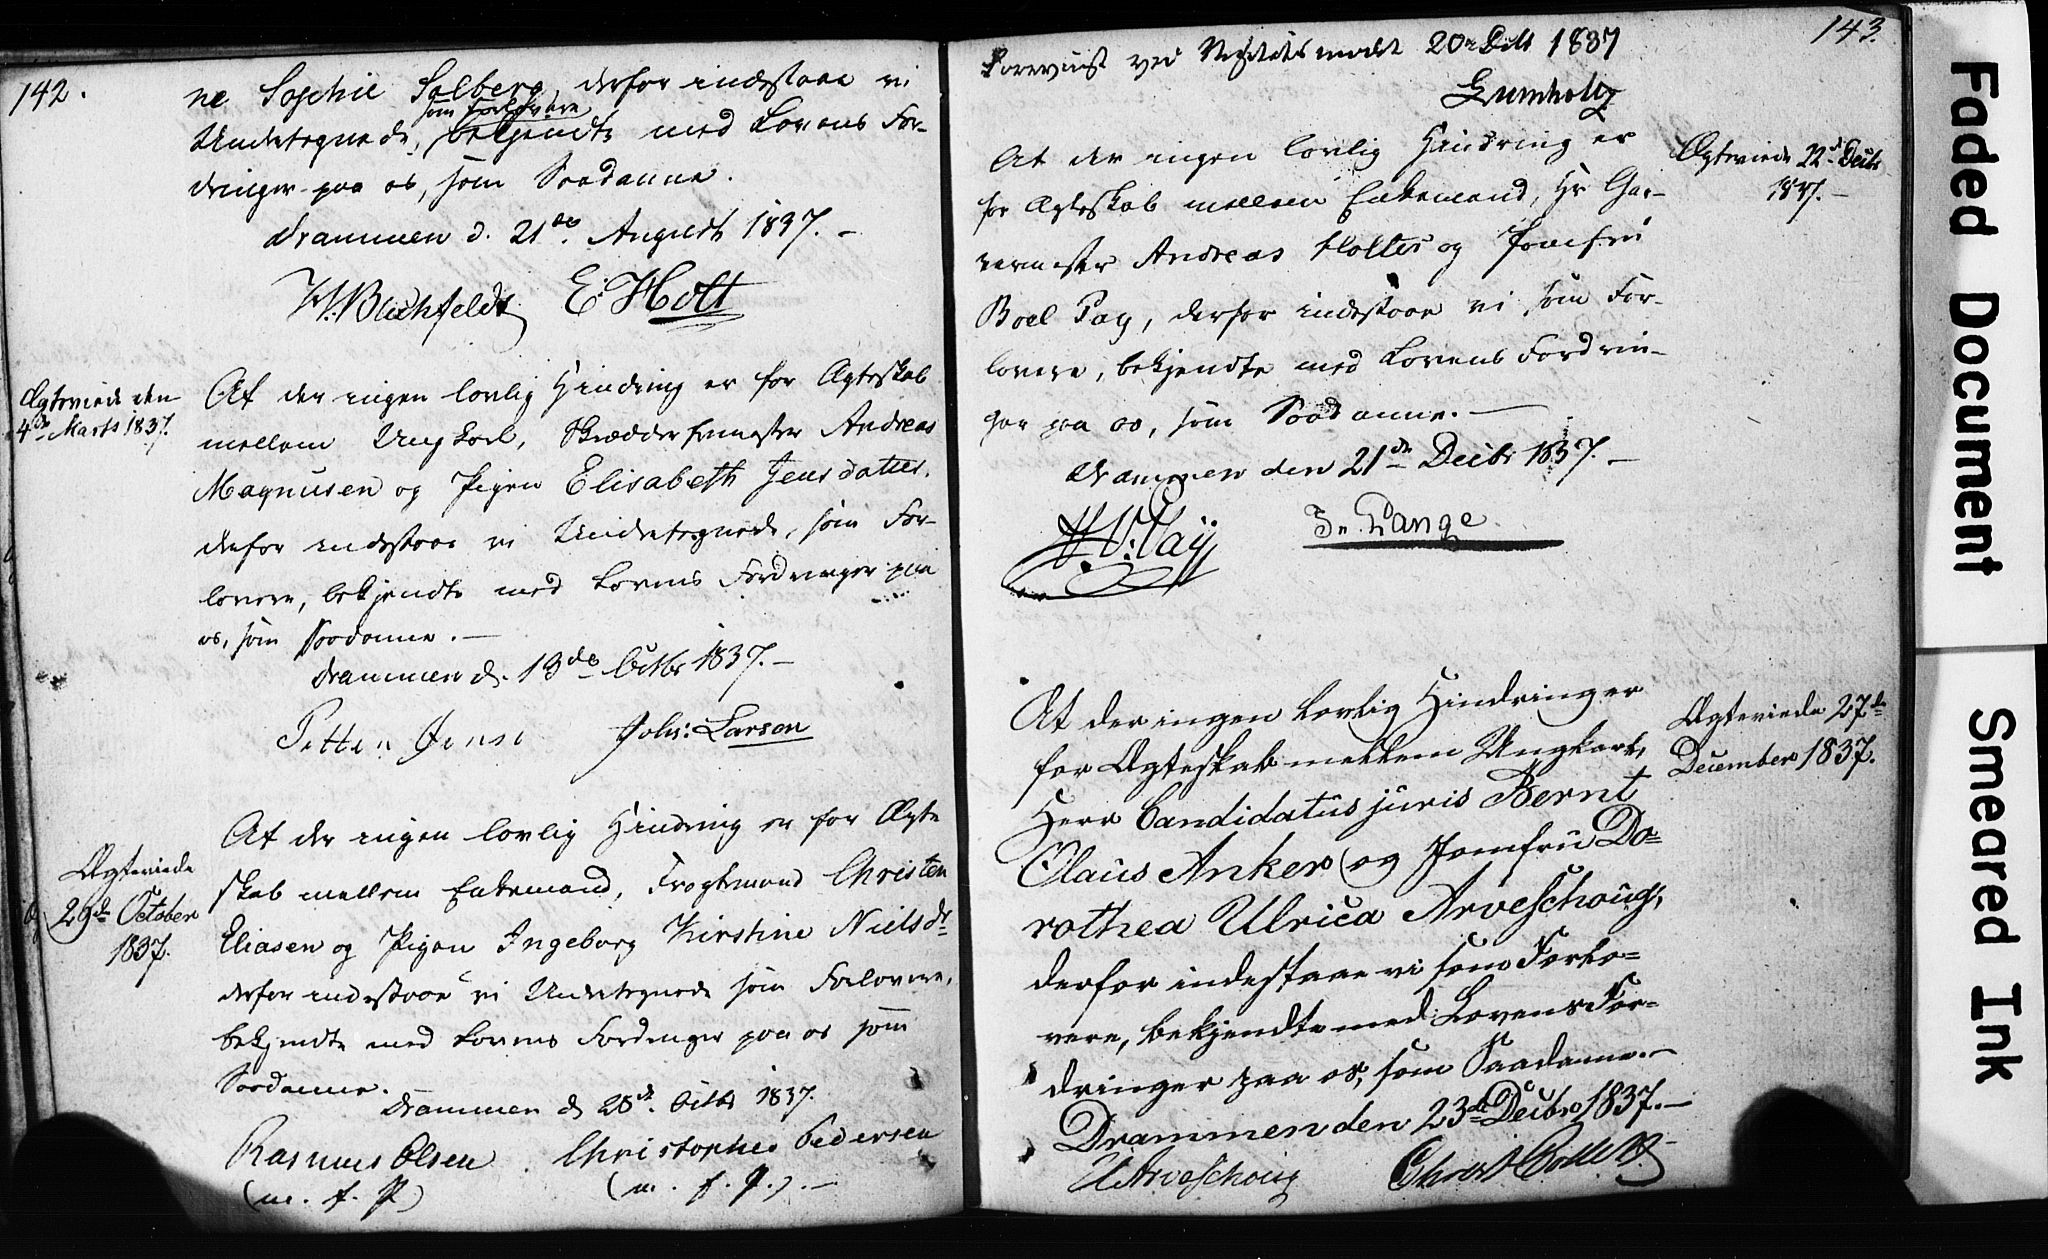 142.
ne Sophie Solberg, derfor indestaae vi
som Forlovere
Undertegnede, bekjendte med Lovens For-
dringer paa os, som Saadanne.
Drammen d. 21de August 1837. –
W. Buchfeldt E. Holt
Ægteviede den
4de Marts 1837.
At der ingen lovlig Hindring er for Ægteskab
mellem Ungkarl, Skræddersvend Andreas
Magnusen og Pigen Elisabeth Jensdatter.
derfor indestaae vi Undertegnede, som For-
lovere, bekjendte med Lovens Fordringer paa
os, som Saadanne. –
Drammen d. 13de Octbr 1837. –
Petter Jense Johs: Larson
Ægteviede
29de October
1837.
At der ingen lovlig Hindring er for Ægte
skab mellem Enkemand, Fragtemand Christen
Eliasen og Pigen Ingeborg Kirstine Nielsdr
derfor indestaae vi Undertegnede som Forlovere,
bekjendte med Lovens Fordringer paa os som
Saadanne.
Drammen d 28de Octbr 1837.
Rasmus Olsen Christopher Pedersen
(m. f. P) (m. f. P.). –
143.
Foreviist ved Visitatsmødet 20de Decbr 1837
Lumholtz
Ægteviede 22de Decbr
1837. –
At der ingen lovlig Hindring er
for Ægteskab mellem Enkemand, Hr Gar-
vermester Andreas Holter og Jomfru
Boel Pay, derfor indestaae vi som For-
lovere, bekjendte med Lovens Fordrin-
ger paa os, som Saadanne. –
Drammen den 21de Decbr 1837. –
H. V. Pay Lange
Ægteviede 27de
December 1837.
At der ingen lovlig Hindring er
for Ægteskab mellem Ungkarl,
Herr Candidatus juris Bernt
Olaus Anker og Jomfru Do=
rothea Ulrica Arveschoug,
derfor indestaae vi som Forlo=
vere, bekjendte med Lovens For-
dringer paa os, som Saadanne. –
Drammen den 23de Decbr 1837. –
U Arveschoug
Faded Document
Smeared Ink